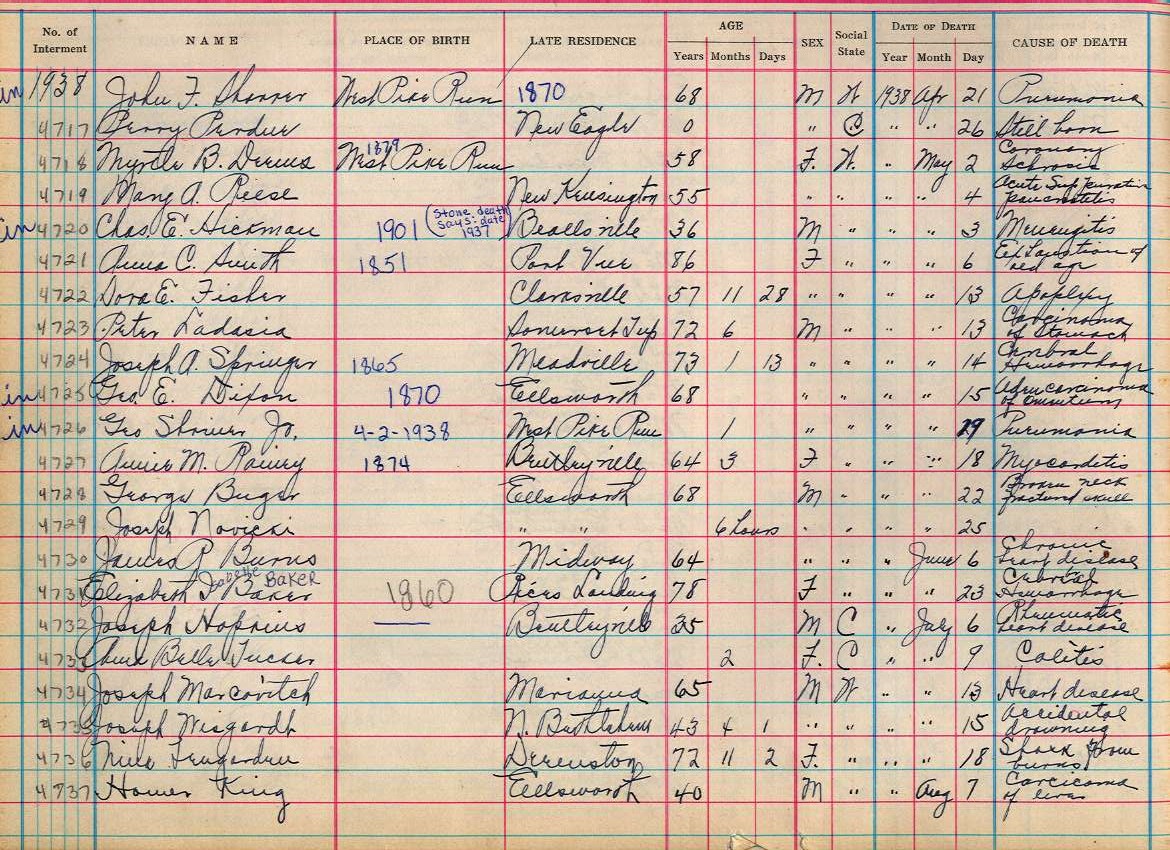 No. of Interment NAME PLACE OF BIRTH LATE RESIDENCE AGE SEX Social State DATE OF DEATH CAUSE OF DEATH
Years Months Days Year Month Day
in 1938 John F. West Pike Run 1870 68 M W 1938 Apr 21 Pneumonia
4717 Perry Perdue New Eagle 0 " C " " 26 Still born
4718 Myrtle B. 1879 West Pike Run 58 F. W. " May 2 Coronary Sclerosis
4719 Mary A. Reese New Kensington 55 " " " " 4 Acute Suppurative pancreatitis
in 4720 Chas. E. Hickman 1901 (Stone death says: date 1937) Beallsville 36 M " " " 3 Meningitis
4721 Anna C. Smith 1851 Port Vue 86 F " " " 6 Exhaustion of old age
4722 Dora E. Fisher Clarksville 57 11 28 " " " " 13 Apoplexy
4723 Peter Ladasia Somerset Twp 72 6 M " " " 13 Carcinoma of Stomach
4724 Joseph A. Springer 1865 Meadville 73 1 13 " " " " 14 Cerebral Hemorrhage
in 4725 Geo. E. Dixon 1870 Ellsworth 68 " " " " 15 Adenocarcinoma of
in 4726 Geo Shriver Jr. 4-2-1938 West Pike Run 1 " " " " Pneumonia
4727 Annie M. Rainey 1874 Bentleyville 64 3 F " " " 18 Myocarditis
4728 George Buger Ellsworth 68 M " " " 22 Broken neck fractured skull
4729 Joseph Novicki " " 6 hours " " " " 25
4730 James P. Burns Midway 64 " " " June 6 Chronic heart disease
4731 Elizabeth Isabelle BAKER Baker 1860 Rices Landing 78 F " " " 23 Cerebral Hemorrhage
4732 Joseph Hopkins Bentleyville 35 M C " July 6 Rheumatic heart disease
4733 Belle Tucker 2 F. C " " 9 Colitis
4734 Joseph Marcovitch Marianna 65 M W " " 13 Heart disease
4735 Joseph Wisgardt N. Bethlehem 43 4 1 " " " " 15 Accidental drowning
4736 72 11 2 F. " " " 18 Shock from burns
4737 Homer King Ellsworth 40 M " " Aug 7 Carcicoma of liver